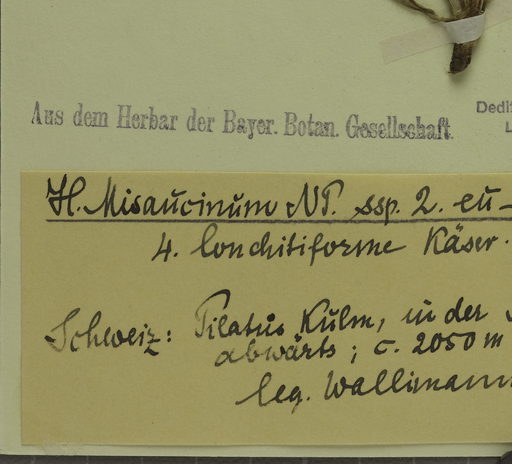 Aus dem Herbar der Bayer. Botan. Gesellschaft.
Dedi
L
H. Misaucinum NP. ssp. 2. eu-
4. lonchitiforme Käser.
Schweiz: Pilatus Kulm, in der
abwärts; c. 2050 m
leg. Wallimann